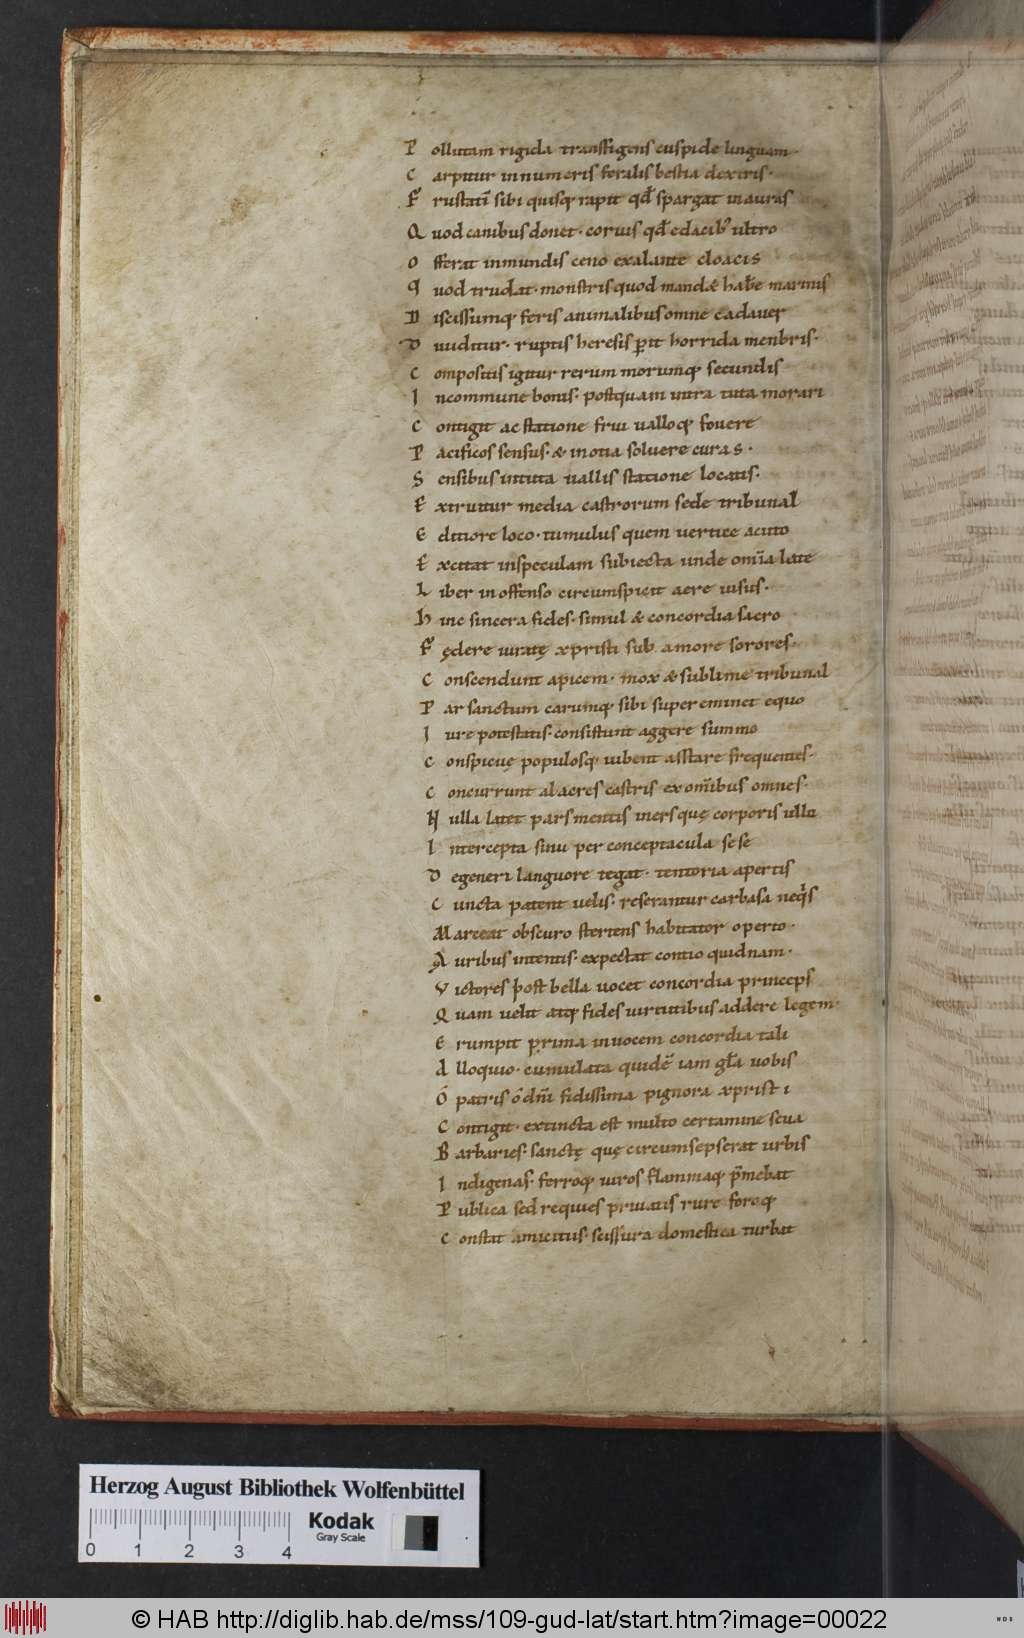 P ollutam rigida transfigens cuspide linguam.
C arpitur innumeris feralis bestia dextris.
F rustatī sibi quisq; rapit qđ spargat inauras
Q uod canibus donet. coruis qđ edacib; ultro
O fferat inmundis ceno exalante cloacis
Q uod trudat. monstris quod mandæ habere marinis
D iscissumq; feris animalibus omne cadauer
D iuiditur. ruptis heresis perit horrida menbris.
C ompositis igitur rerum morumq; secundis
I ncommune bonis. postquam intra tuta morari
C ontigit ac statione frui ualloq; fouere
P acificos sensus. & inotia soluere curas.
S ensibus intuta uallis statione locatis.
E xtruitur media castrorum sede tribunal
E ditiore loco. tumulus quem uertice acuto
E xcitat inspeculam subiecta unde omīa late
L iber inoffenso circumspicit aere uisus.
h inc sincera fides. simul & concordia sacro
F ędere iuratę xpristi sub amore sorores.
C onscendunt apicem. mox & sublime tribunal
P ar sanctum carumq; sibi supereminet equo
I ure potestatis. consistunt aggere summo
C onspicuę populosq; iubent asstare frequentes.
C oncurrunt alacres castris ex omībus omnes.
N ulla latet pars mentis iners quę corporis ullo
I ntercepta sinu per conceptacula sese
D egeneri languore tegat. tentoria apertis
C uncta patent uelis. reserantur carbasa neq͛s
M arceat obscuro stertens habitator operto.
A uribus intentis. expectat contio quidnam.
V ictores post bella uocet concordia princeps
Q uam uelit atq; fides uirtutibus addere legem.
E rumpit prima inuocem concordia tali
A lloquio. cumulata quidē iam gła uobis
Ó patris ó dn̄i fidissima pignora xpristi
C ontigit. extincta est multo certamine seua
B arbaries. sanctę quę circumsepserat urbis
I ndigenas. ferroq; uiros flammaq; p̄mebat
P ublica sed requies priuatis rure foroq;
C onstat amicitiis. scissura domestica turbat
Herzog August Bibliothek Wolfenbüttel
Kodak
Gray Scale
0 1 2 3 4
© HAB http://diglib.hab.de/mss/109-gud-lat/start.htm?image=00022